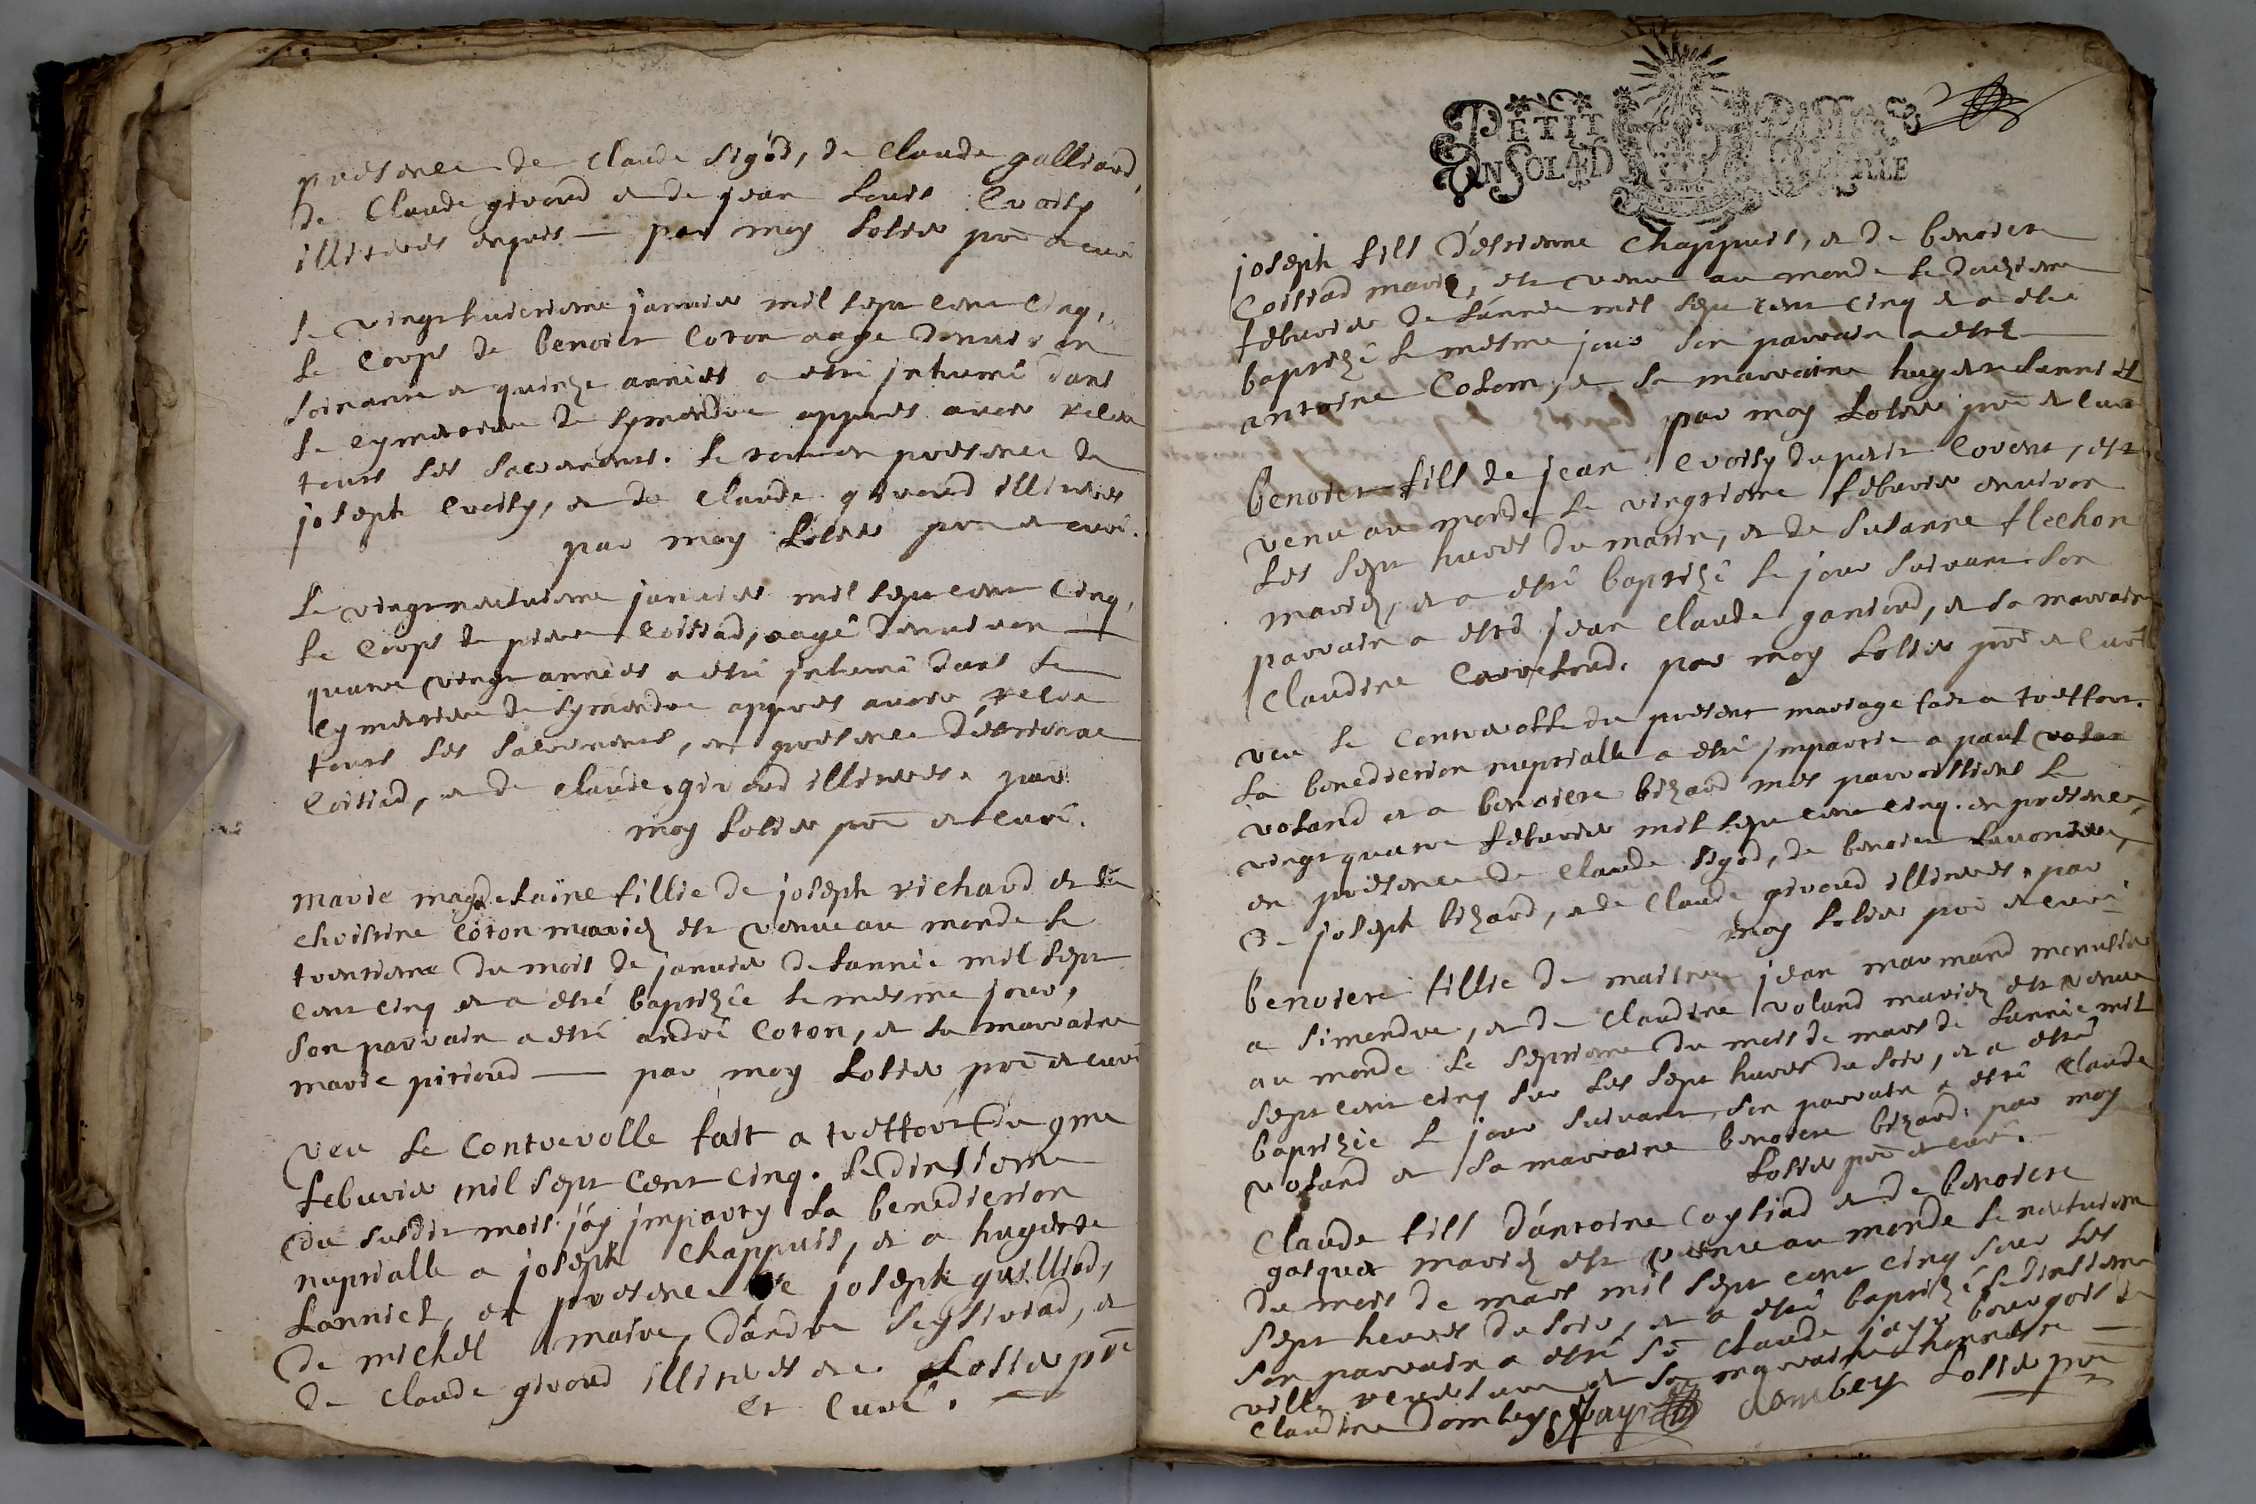 presence de claude sigod, de claude galliard,
de Claude givord et de jean Louis Croisy
illiteres enquis — par moy Lolier pre et curé
le vingt huictieme janvier mil sept cent cinq,
le corps de benoist coton aage denviron
soixante et quinze années a esté jnhumé dans
le cymetiere de symandre appres avoir receu
tous les sacremens. le tout en presence de
joseph Croisy, et de claude givord illiteres
par moy Lolier pre et curé.
Le vingt neufuieme janvier mil sept cent cinq,
le corps de pierre Coisiad, aagé denviron
quatre vingt années a esté jnhumé dans le
cymetiere de symandre appres avoir receu
tous les sacremens, en presence d'estienne
Coisiad, et de claude givord illiteres. par
moy Lolier pre et curé.
marie magdelaine fillie de joseph richard et de
christine coton mariez est venue au monde le
trentieme du mois de janvier de lannée mil sept
cent cinq et a esté baptizée le mesme jour,
son parrain a esté andré Coton, et sa marraine
marie pirioud — par moy Lolier pre et curé
veu le Controrolle fait a treffort du 9me
febvrier mil sept cent cinq. le dixieme
du susdit mois j'ay jmparty la benediction
nuptialle a joseph Chappuis, et a hugette
Lanniel, en presence de joseph guilliod,
de michel maire, d'andre seysiriad, et
de Claude givord illiteres etc. Lolier pre
et Curé.
PETIT PAPIER
UN SOL 4 D LA FEUILLE
joseph fils d'estienne Chappuis, et de benoiste
Coisiad mariez, est venu au monde le douzieme
febvrier de l'année mil sept cent cinq et a esté
baptizé le mesme jour son parrain a esté
antoine Colom, et sa marraine hugette Lanniel
par moy Lolier pre et curé
benoist fils de jean Croisy du petit Covent, est
venu au monde le vingtieme febvrier environ
les sept hures du matin, et de susanne flechon
mariez, et a esté baptizé le jour suivant son
parrain a esté jean claude ganiard, et sa marraine
Claudine par moy Lolier pre et Curé
veu le Controrolle du present mariage fait a treffort.
La benediction nuptialle a esté jmpartie a paul
voland et a benoiste bizard mes parroissiens le
vingt quatre febvrier mil sept cent cinq. en presence,
en presence de Claude sigod, de benoist
de joseph bizard, et de Claude givord illiteres. par
moy Lolier pre et curé
benoiste fillie de maitre jean marmand menusier
a simandre, et de Claudine voland mariez est venue
au monde le septieme du mois de mars de lannée mil
sept cent cinq sur les sept hures du soir, et a esté
baptizée le jour suivant, son parrain a esté Claude
voland et sa marraine benoiste bizard. par moy
Lolier pre et curé.
Claude fils d'antoine Coysiad et de benoiste
gasquet mariez est venu au monde le neufuieme
du mois de mars mil sept cent cinq sur les
sept heures du soir, et a esté baptizé le dixieme
son parrain a esté sr Claude jayr bourgois de
ville et sa marraine honneste
Claudine Dombey Jayr dombey Lolier pre